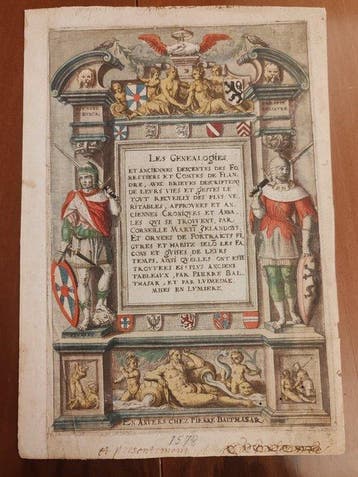 LES GENEALOGIES
ET ANCIENNES DESCENTES DES FO-
RESTIERS ET COMTES DE FLAN-
DRE, AVEC BRIEVES DESCRIPTIONS
DE LEURS VIES ET GESTES LE
TOUT RECUEILLY DES PLUS VE-
RITABLES, APPROVEES ET AN-
CIENNES CRONIQUES ET ANNA-
LES QUI SE TROUVENT, PAR
CORNEILLE MARTI ZELANDOIS
ET ORNEES DE PORTRAICTS FI-
GURES ET HABITZ SELO LES FA-
CONS ET GUISES DE LEURS
TEMPS, AINSI QUELLES ONT ESTE
TROUVEES ES PLUS ANCIENS
TABLEAUX, PAR PIERRE BAL-
THASAR, ET PAR LUI MESME
MISES EN LUMIERE.
EN ANVERS CHEZ PIERRE BALTHASAR.
1578
et